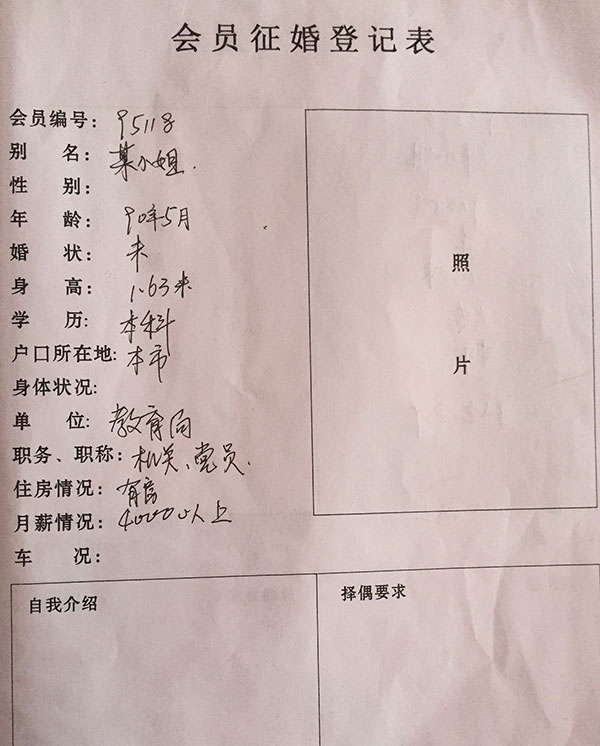 会员征婚登记表
会员编号：95118
别 名：某小姐.
性 别：
年 龄：90年5月
婚 状：未
身 高：1.63米
学 历：本科
户口所在地：本市
身体状况：
单 位：教育局
职务、职称：机关、党员.
住房情况：有房
月薪情况：4000以上
车 况：
照
片
自我介绍
择偶要求